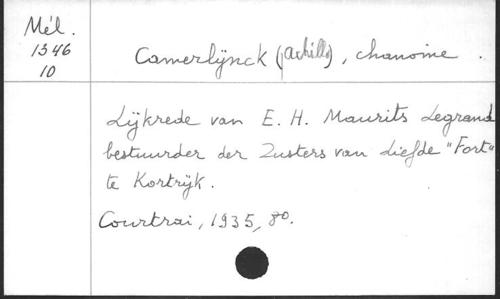 Mél.
1346
10
Camerlÿnck (Achille), chanoine.
Lÿkrede van E. H. Maurits Legrand
bestuurder der Zusters van Liefde "Fort"
te Kortrÿk.
Courtrai, 1935, 8o.